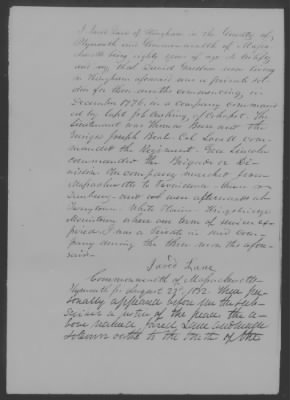 I Jared Lane of Hingham in the County of
Plymouth and Commonwealth of Massa-
chusetts being eighty years of age do testify
and say that David Gardner now living
in Hingham aforesaid was a private sol-
dier for three months commencing in
December 1776, in a company command
ed by Capt Job Cushing, of Cohasset. The
Lieutenant was Thomas Burr and the
Ensign Joseph Beal. Col Lovell com-
manded the Regiment. Gen Lincoln
commanded the Brigade or Di-
vision. Our company marched from
Massachusetts to Providence thence to
Danbury and was afterwards at
Tarrytown White Plains Kingsbridge
Mountains where our term of service ex-
pired. I am a Private in said Com-
pany during the three months afore-
said
Jared Lane
Commonwealth of Massachusetts
Plymouth ss August 23d 1832. Then per-
sonally appeared before me the sub-
scriber a justice of the peace the a-
bove named Jared Lane and made
solemn oath to the truth of the